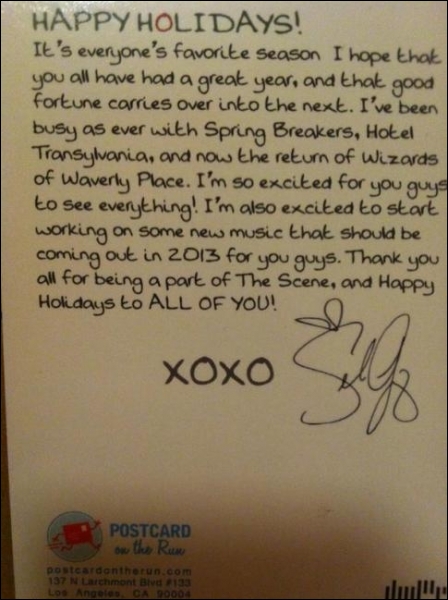 HAPPY HOLIDAYS!
It's everyone's favorite season I hope that
you all have had a great year, and that good
fortune carries over into the next. I've been
busy as ever with Spring Breakers, Hotel
Transylvania, and now the return of Wizards
of Waverly Place. I'm so excited for you guys
to see everything! I'm also excited to start
working on some new music that should be
coming out in 2013 for you guys. Thank you
all for being a part of The Scene, and Happy
Holidays to ALL OF YOU!
XOXO
POSTCARD
on the Run
postcardontherun.com
137 N Larchmont Blvd #133
Los Angeles, CA 90004